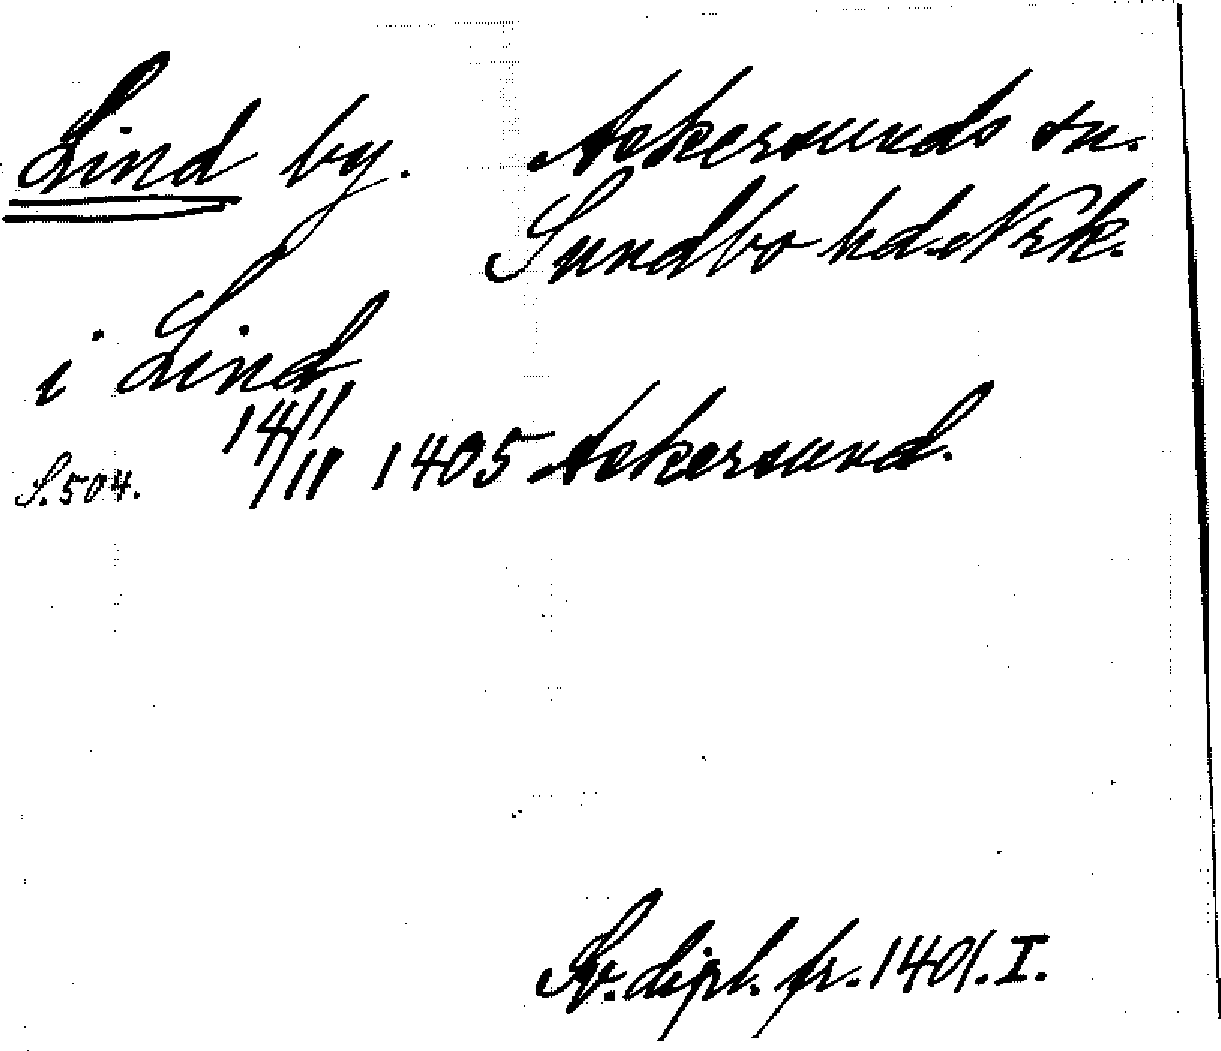 Lind by. Askersunds sn.
Sundbo hd. Nrk.
i Lind
S. 504. 14/11 1405 Askersund.
Sv. dipl. fr. 1401. I.